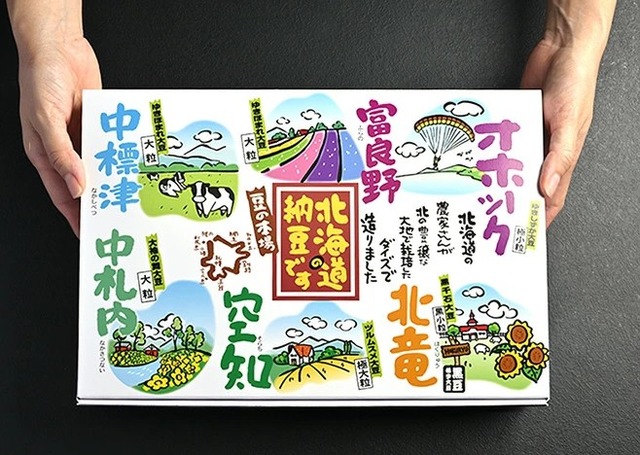 中標津
なかしべつ
ゆきほまれ大豆
大粒
ゆきほまれ大豆
大粒
富良野
ふらの
オホーツク
ゆきしずか大豆
極小粒
北海道の
農家さんが
北の豊穣な
大地で栽培した
ダイズで
造りました
豆の本場
北海道の
納豆です
中札内
なかさつない
大袖の舞大豆
大粒
空知
そらち
ツルムスメ大豆
極大粒
北竜
ほくりゅう
黒千石大豆
黒小粒
HOKURYU
黒豆